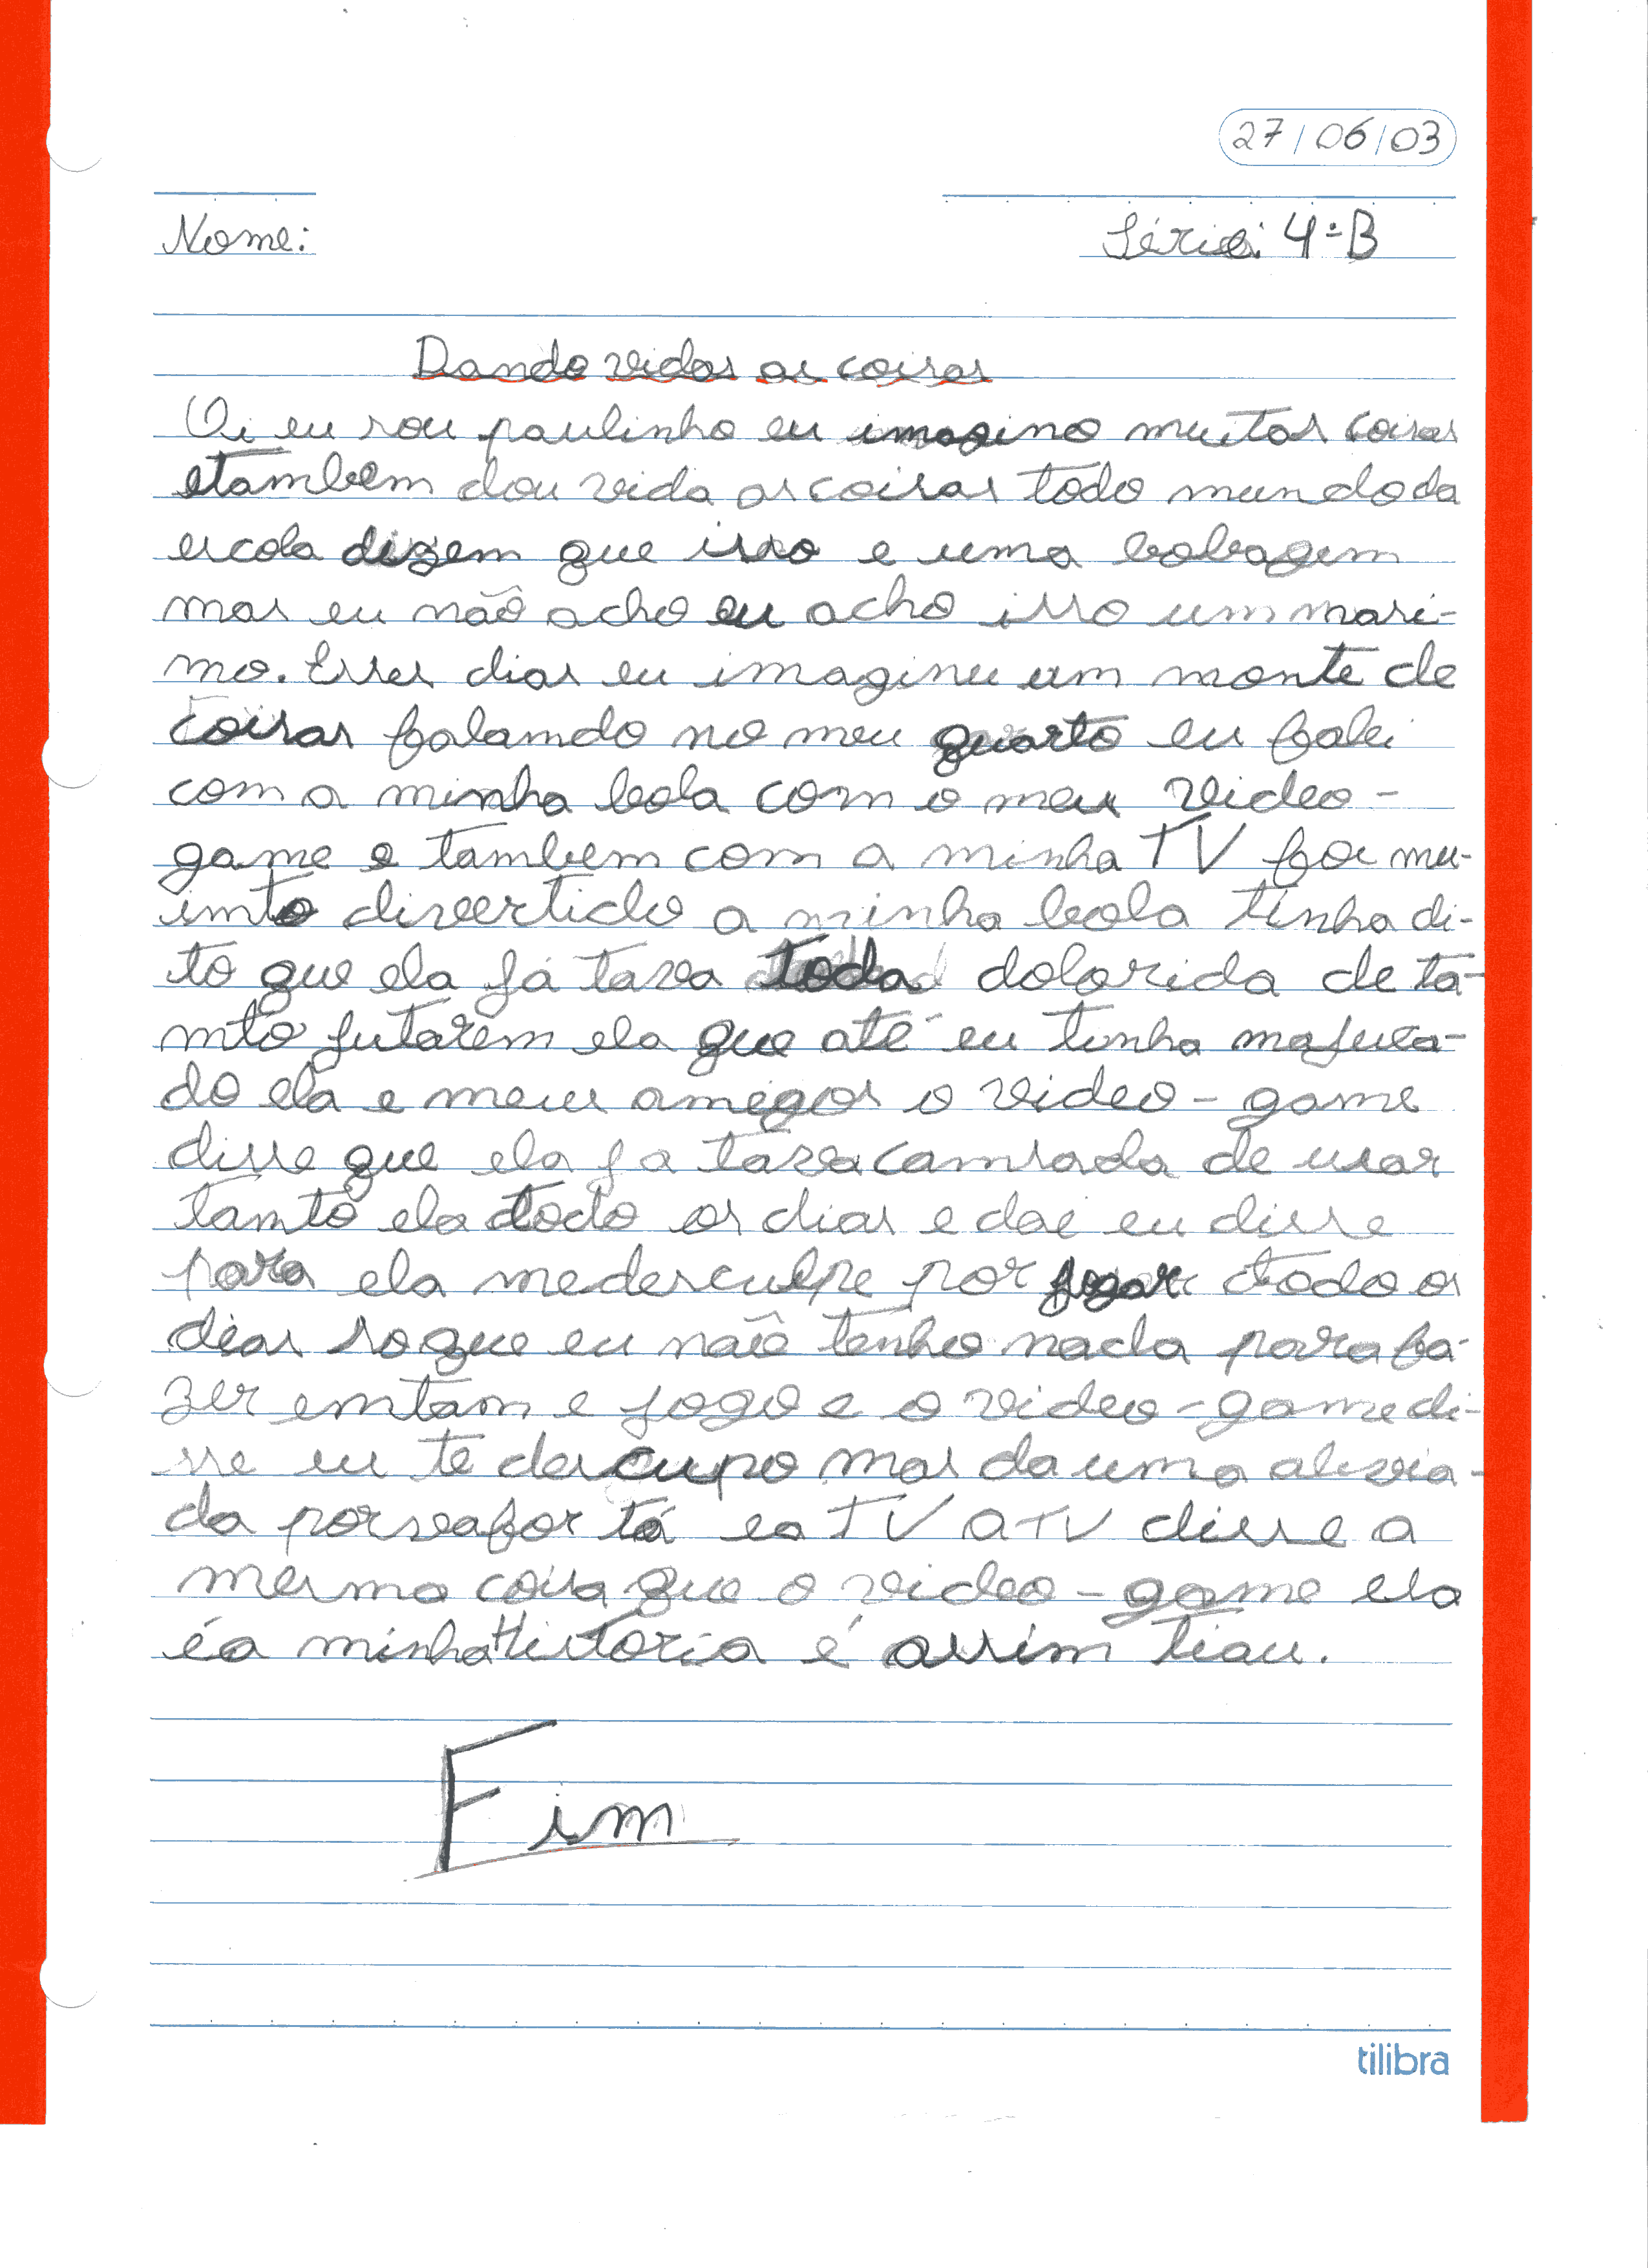 27/06/03
Nome: Série: 4ªB
Dando vidas as coisas
Oi eu sou paulinho eu imagino muitas coisas
etambem dou vida as coisas todo mundo da
escola dizem que isso e uma bobagem
mas eu não acho eu acho isso um maxi-
mo. Esses dias eu imagineu um monte de
coisas falamdo no meu quarto eu falei
com a minha bola com o meu video-
game e tambem com a minha TV foi mu-
imto divertido a minha bola tinha di-
to que ela já tava toda dolorida de ta-
mto jutarem ela que até eu tinha majuca-
do ela e meus amigos o video-game
disse que ela ja tava camsada de usar
tamto ela todo os dias e dai eu disse
para ela medesculpe por jogar todo os
dias so que eu não tenho nada para fa-
zer emtam e jogo e o video-game di-
sse eu te descupo mas da uma alivia-
da porvafor tá ea TV a TV disse a
mesma coisa que o video-game ela
éa minha Historia é assim tiau.
Fim
tilibra